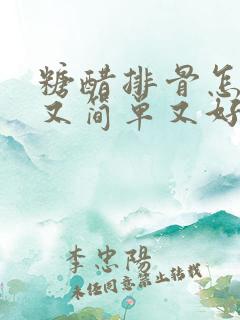 糖醋排骨怎
又简单又好
李忠陽
未经同意禁止转载